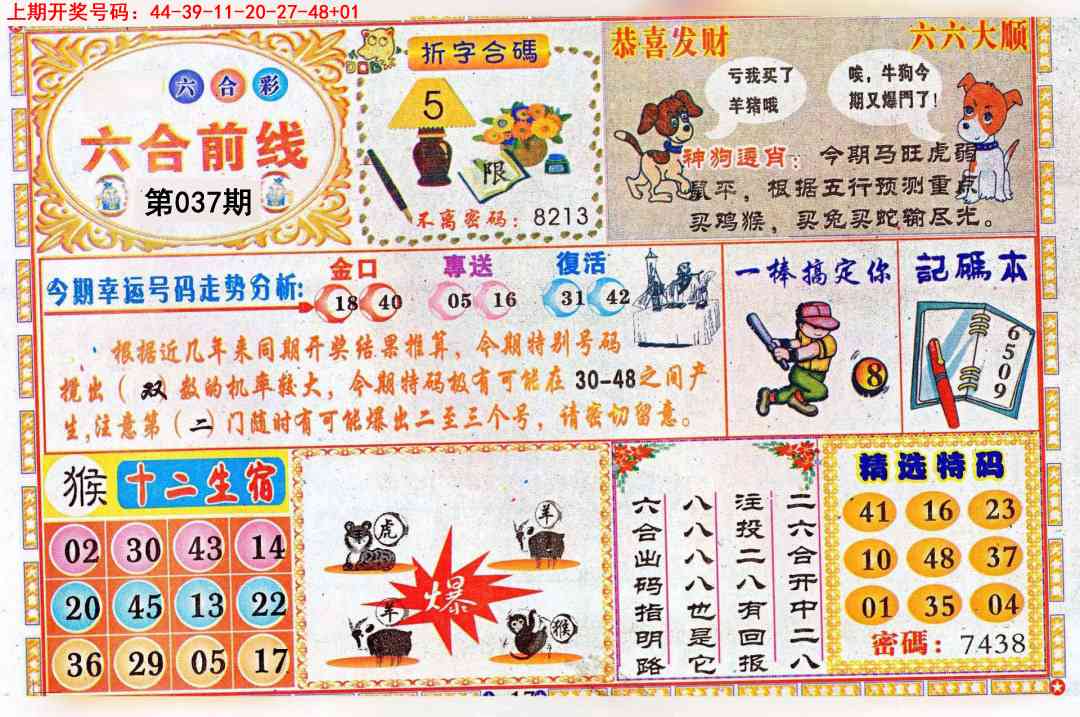 上期开奖号码：44-39-11-20-27-48+01
六合彩
六合前线
第037期
折字合碼
5
限
不离密码：8213
恭喜发财
六六大顺
亏我买了
羊猪哦
唉，牛狗今
期又爆門了!
神狗選肖：今期马旺虎弱
鼠平，根据五行预测重点
买鸡猴，买兔买蛇输尽光。
今期幸运号码走势分析：
金口
18 40
專送
05 16
復活
31 42
根据近几年来同期开奖结果推算，今期特别号码
搅出（双）数的机率较大，今期特码极有可能在30-48之间产
生，注意第（二）门随时有可能爆出二至三个号，请密切留意。
一棒搞定你
8
記碼本
6509
猴
十二生宿
02 30 43 14
20 45 13 22
36 29 05 17
虎
羊
爆
羊
猴
二六合开中二八
注投二八有回报
八八八八也是它
六合出码指明路
精选特码
41 16 23
10 48 37
01 35 04
密碼：7438